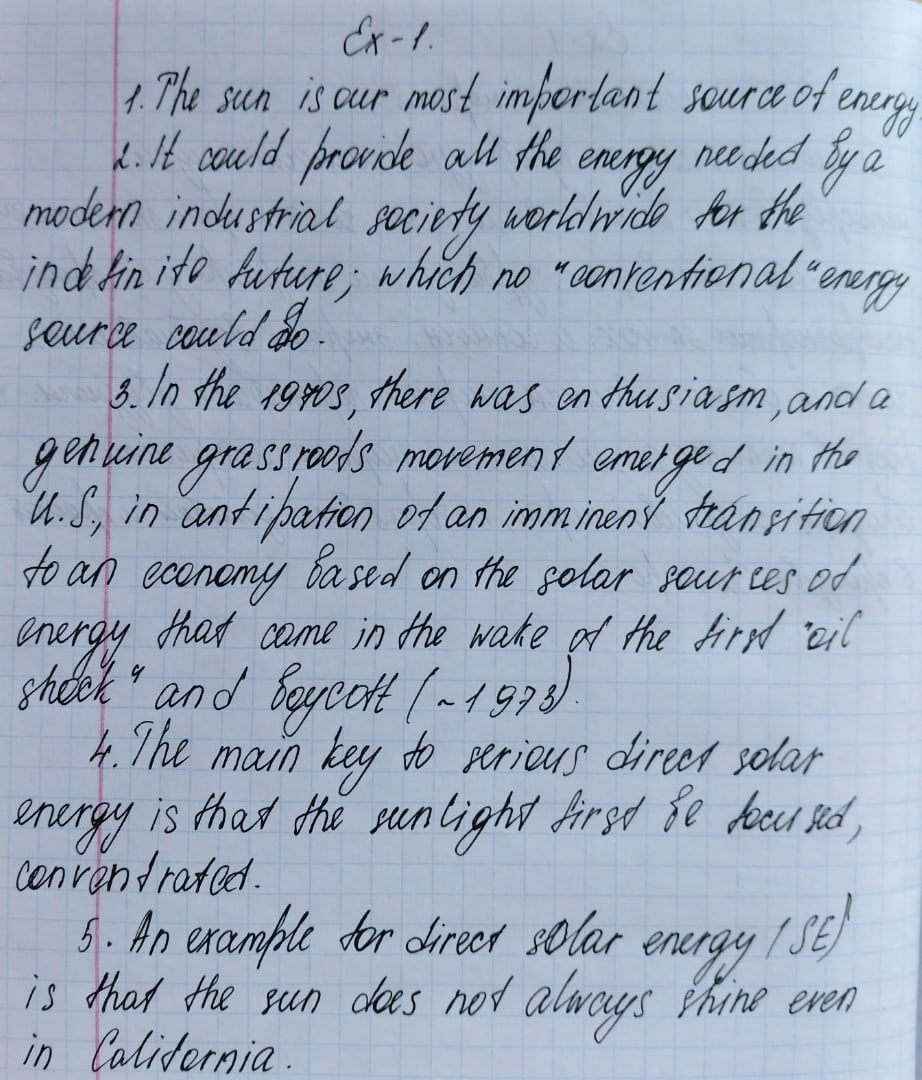 Ex-1.
1. The sun is our most important source of energy
2. It could provide all the energy needed by a
modern industrial society worldwide for the
indefinite future; which no "conventional" energy
source could do.
3. In the 1970s, there was enthusiasm, and a
genuine grassroots movement emerged in the
U.S., in antipation of an imminent transition
to an economy based on the solar sources of
energy that came in the wake of the first "oil
shock" and boycott (~1973).
4. The main key to serious direct solar
energy is that the sunlight first be focused,
conventrated.
5. An example for direct solar energy (SE)
is that the sun does not always shine even
in California.